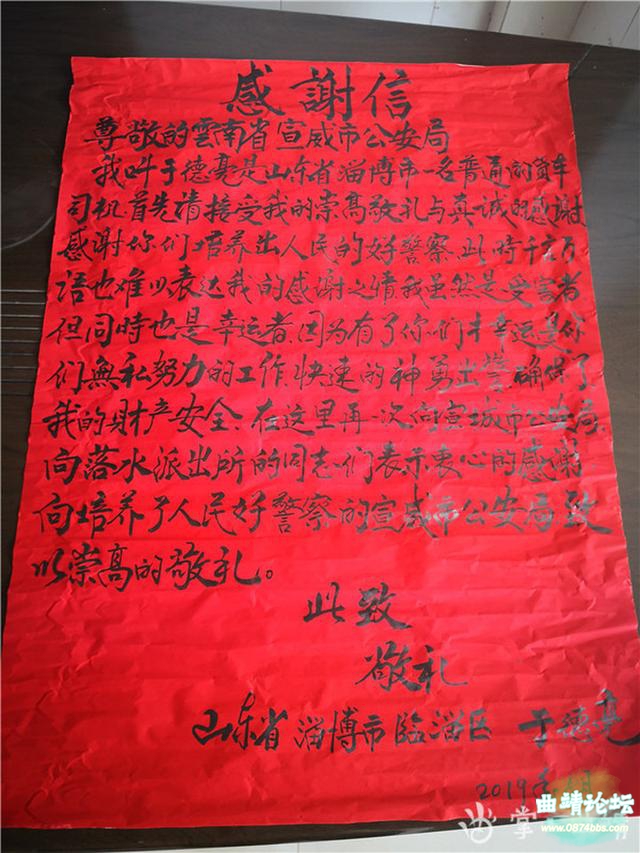 感謝信
尊敬的雲南省宣威市公安局
我叫于德亮是山东省淄博市一名普通的货车
司机.首先请接受我的崇高敬礼与真诚的感谢
感谢你们培养出人民的好警察.此時千言万
语也难以表达我的感谢之情我虽然是受害者
但同時也是幸运者.因为有了你们才幸运是你
们無私努力的工作.快速的神勇出警确保了
我的财产安全.在这里再一次向宣城市公安局.
向落水派出所的同志们表示衷心的感谢.
向培养了人民好警察的宣威市公安局致
以崇高的敬礼。
此致
敬礼
山东省淄博市临淄区 于德亮
2019
曲靖论坛
www.0874bbs.com
掌